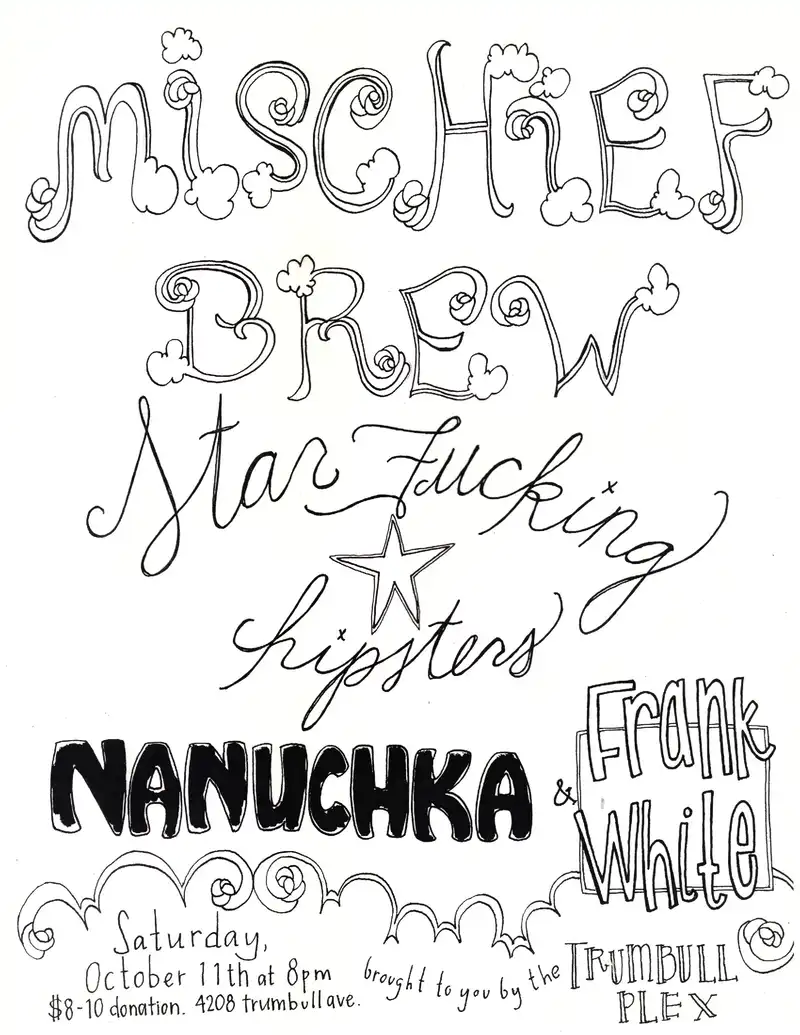 MiSCHiEF
BREW
Star Fucking
hipsters
NANUCHKA
& Frank
White
Saturday,
October 11th at 8pm
$8-10 donation. 4208 trumbull ave.
brought to you by the TRUMBULL
PLEX